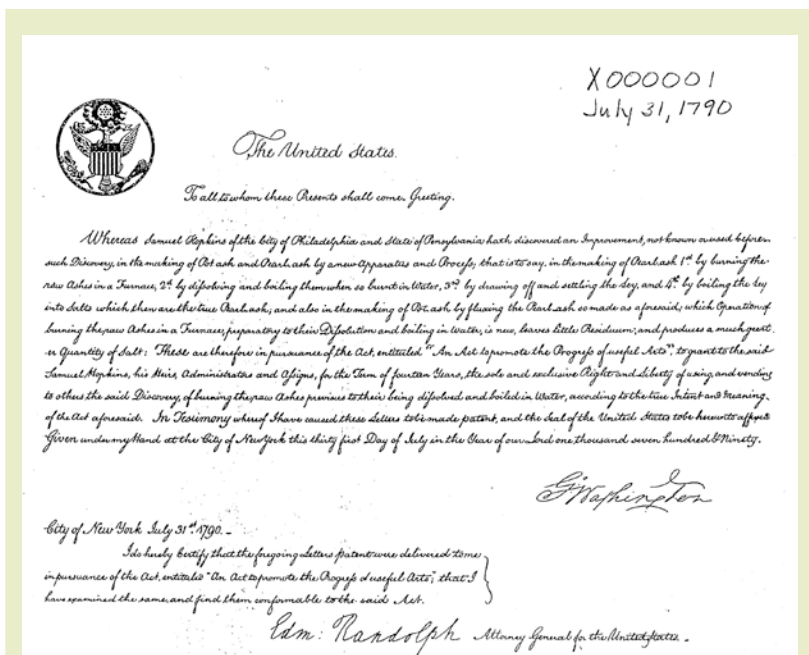 X000001
July 31, 1790
The United States.
To all to whom these Presents shall come, Greeting.
Whereas Samuel Hopkins of the City of Philadelphia and State of Pensylvania hath discovered an Improvement, not known or used before
such Discovery, in the making of Pot ash and Pearl ash by a new Apparatus and Process; that is to say, in the making of Pearl ash 1st. by burning the
raw Ashes in a Furnace, 2d. by dissolving and boiling them when so burnt in Water, 3rd. by drawing off and settling the Ley, and 4th. by boiling the Ley
into Salts which then are the true Pearl ash; and also in the making of Pot ash by fluxing the Pearl ash so made as aforesaid; which Operation of
burning the raw Ashes in a Furnace, preparatory to their Dissolution and boiling in Water, is new, leaves little Residuum; and produces a much great
er Quantity of Salt: These are therefore in pursuance of the Act, entituled "An Act to promote the Progress of useful Arts", to grant to the said
Samuel Hopkins, his Heirs, Administrators and Assigns, for the Term of fourteen Years, the sole and exclusive Right and Liberty of using, and vending
to others the said Discovery, of burning the raw Ashes previous to their being dissolved and boiled in Water, according to the true Intent and Meaning
of the Act aforesaid. In Testimony whereof I have caused these Letters to be made patent, and the Seal of the United States to be hereunto affixed
Given under my Hand at the City of New York this thirty first Day of July in the Year of our Lord one thousand seven hundred & Ninety.
G. Washington
City of New York July 31st. 1790. -
I do hereby Certify that the foregoing Letters patent were delivered to me
in pursuance of the Act, entituled "An Act to promote the Progress of useful Arts"; that I
have examined the same, and find them conformable to the said Act.
Edm: Randolph Attorney General for the United States.